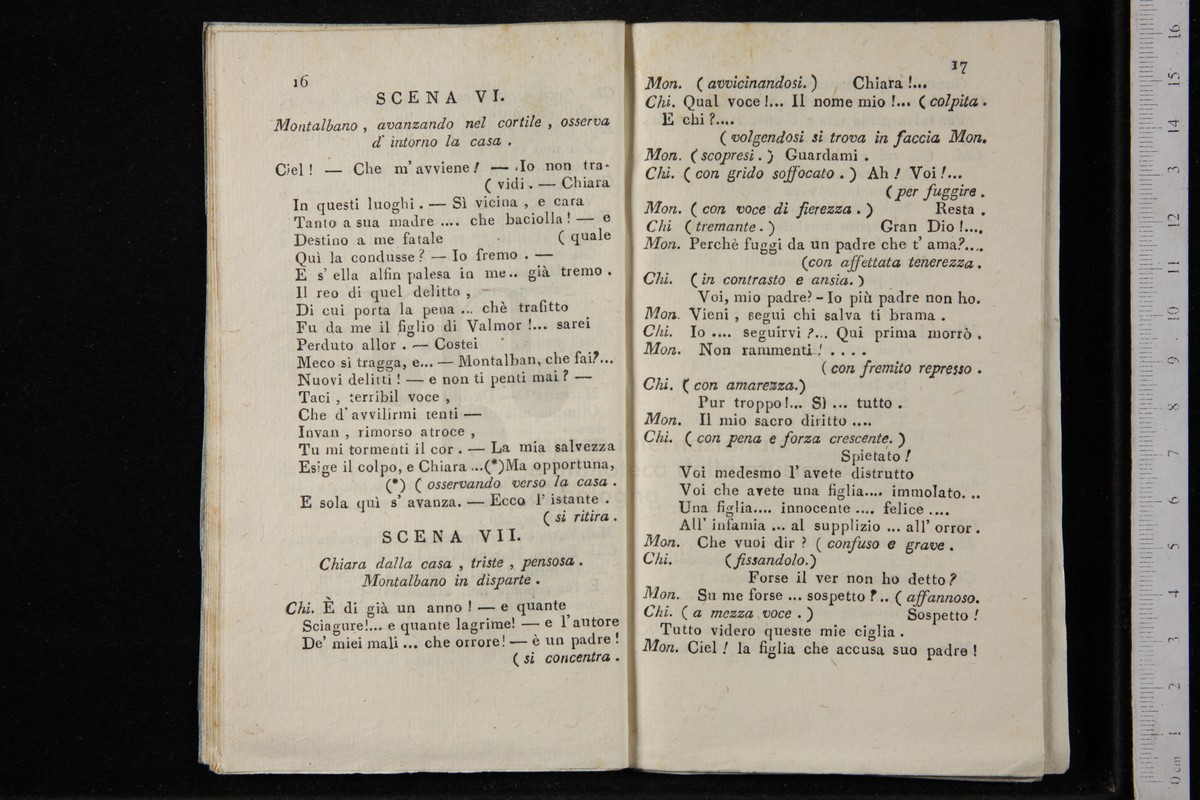 16
SCENA VI.
Montalbano , avanzando nel cortile , osserva
d' intorno la casa .
Ciel ! — Che m' avviene ! — Io non tra-
( vidi . — Chiara
In questi luoghi . — Sì vicina , e cara
Tanto a sua madre .... che baciolla ! — e
Destino a me fatale ( quale
Quì la condusse ? — Io fremo . —
E s' ella alfin palesa in me .. già tremo .
Il reo di quel delitto ,
Di cui porta la pena ... chè trafitto
Fu da me il figlio di Valmor !... sarei
Perduto allor . — Costei
Meco si tragga, e... — Montalban, che fai?...
Nuovi delitti ! — e non ti penti mai ? —
Taci , terribil voce ,
Che d' avvilirmi tenti —
Invan , rimorso atroce ,
Tu mi tormenti il cor . — La mia salvezza
Esige il colpo, e Chiara ...(*)Ma opportuna,
(*) ( osservando verso la casa .
E sola quì s' avanza. — Ecco l' istante .
( si ritira .
SCENA VII.
Chiara dalla casa , triste , pensosa .
Montalbano in disparte .
Chi. È di già un anno ! — e quante
Sciagure!... e quante lagrime! — e l'autore
De' miei mali ... che orrore! — è un padre !
( si concentra .
17
Mon. ( avvicinandosi. ) Chiara !...
Chi. Qual voce !... Il nome mio !... ( colpita .
E chi ?....
( volgendosi si trova in faccia Mon.
Mon. ( scopresi . ) Guardami .
Chi. ( con grido soffocato . ) Ah ! Voi !...
( per fuggire .
Mon. ( con voce di fierezza . ) Resta .
Chi ( tremante . ) Gran Dio !....
Mon. Perchè fuggi da un padre che t' ama?....
(con affettata tenerezza .
Chi. ( in contrasto e ansia. )
Voi, mio padre? - Io più padre non ho.
Mon. Vieni , segui chi salva ti brama .
Chi. Io .... seguirvi ?... Qui prima morrò .
Mon. Non rammenti ! . . . .
( con fremito represso .
Chi. ( con amarezza.)
Pur troppo !... Sì ... tutto .
Mon. Il mio sacro diritto ....
Chi. ( con pena e forza crescente. )
Spietato !
Voi medesmo l' avete distrutto
Voi che avete una figlia.... immolato. ..
Una figlia.... innocente .... felice ....
All' infamia ... al supplizio ... all' orror .
Mon. Che vuoi dir ? ( confuso e grave .
Chi. (fissandolo.)
Forse il ver non ho detto ?
Mon. Su me forse ... sospetto ? .. ( affannoso.
Chi. ( a mezza voce . ) Sospetto !
Tutto videro queste mie ciglia .
Mon. Ciel ! la figlia che accusa suo padre !
16
15
14
13
12
11
10
9
8
7
6
5
4
3
2
1
0 cm